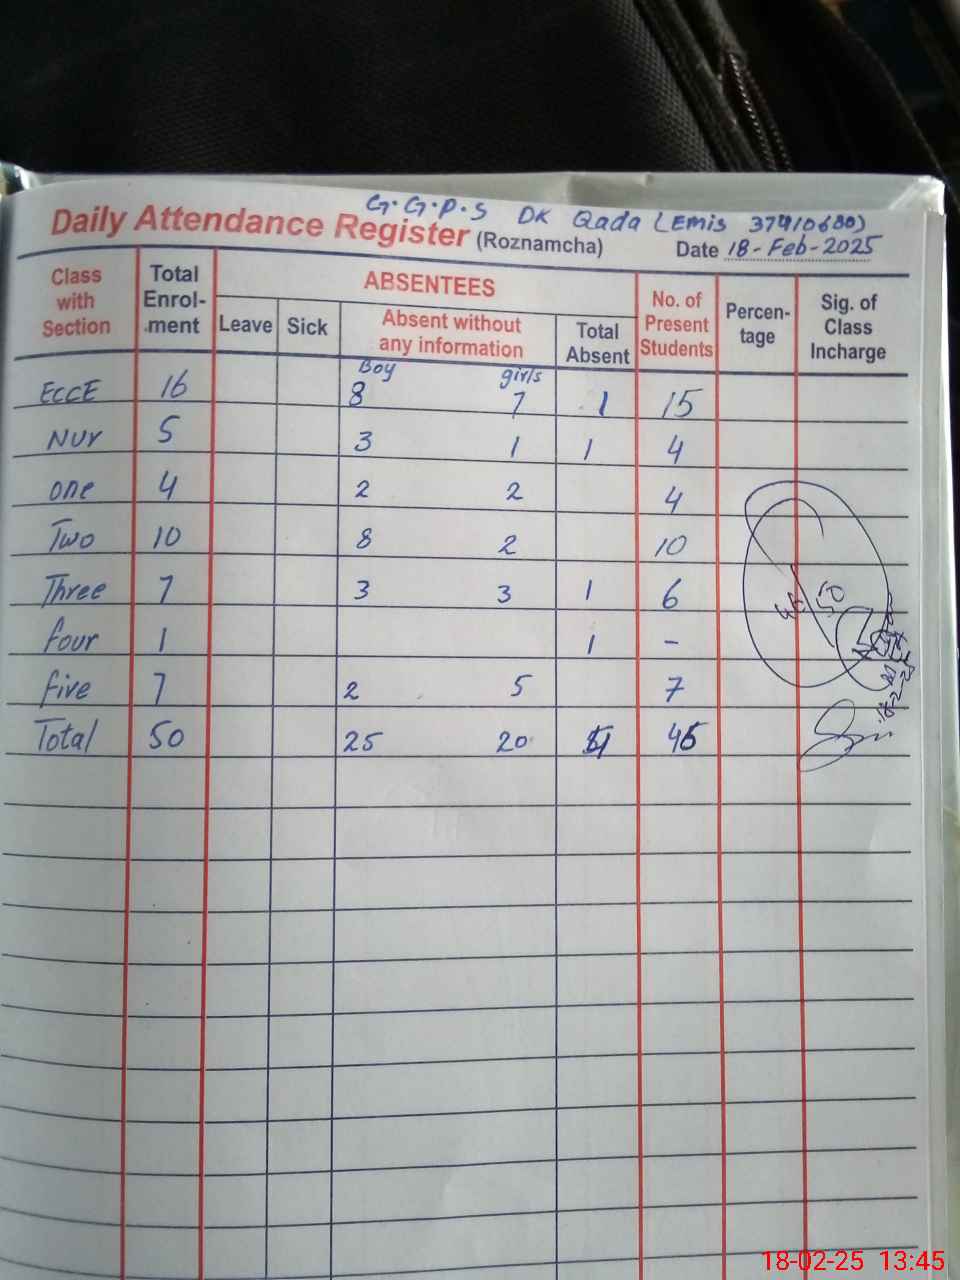 G.G.P.S DK Qada (Emis 37410680)
Daily Attendance Register (Roznamcha) Date 18-Feb-2025
Class with Section Total Enrol-ment ABSENTEES No. of Present Students Percen-tage Sig. of Class Incharge
Leave Sick Absent without any information Total Absent
Boy girls
ECCE 16 8 7 1 15
Nur 5 3 1 1 4
one 4 2 2 4
Two 10 8 2 10
Three 7 3 3 1 6
four 1 1 -
five 7 2 5 7
Total 50 25 20 45
18-02-25 13:45